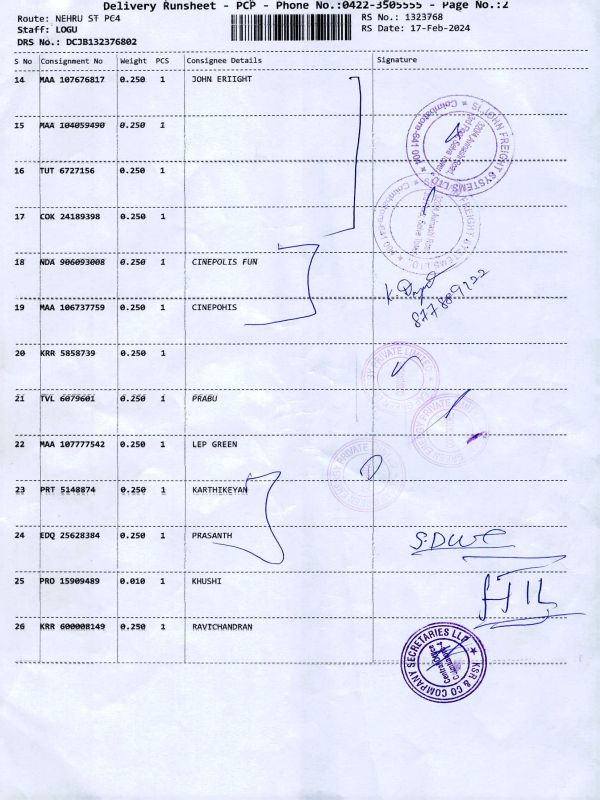 Delivery Runsheet - PCP - Phone No.:0422-3505555 - Page No.:2
Route: NEHRU ST PC4 RS No.: 1323768
Staff: LOGU RS Date: 17-Feb-2024
DRS No.: DCJB132376802
S No Consignment No Weight PCS Consignee Details Signature
14 MAA 107676817 0.250 1 JOHN ERIIGHT
15 MAA 104059490 0.250 1
16 TUT 6727156 0.250 1
17 COK 24189398 0.250 1
18 NDA 906093008 0.250 1 CINEPOLIS FUN
19 MAA 106737759 0.250 1 CINEPOHIS
20 KRR 5858739 0.250 1
21 TVL 6079601 0.250 1 PRABU
22 MAA 107777542 0.250 1 LEP GREEN
23 PRT 5148874 0.250 1 KARTHIKEYAN
24 EDQ 25628384 0.250 1 PRASANTH
25 PRO 15909489 0.010 1 KHUSHI
26 KRR 600008149 0.250 1 RAVICHANDRAN
JOHN FREIGHT SYSTEMS
Coimbatore-641 004
FREIGHT SYSTEMS LTD.
PRIVATE LIMITED
PRIVATE
PRIVATE
KSR & CO COMPANY SECRETARIES LLP